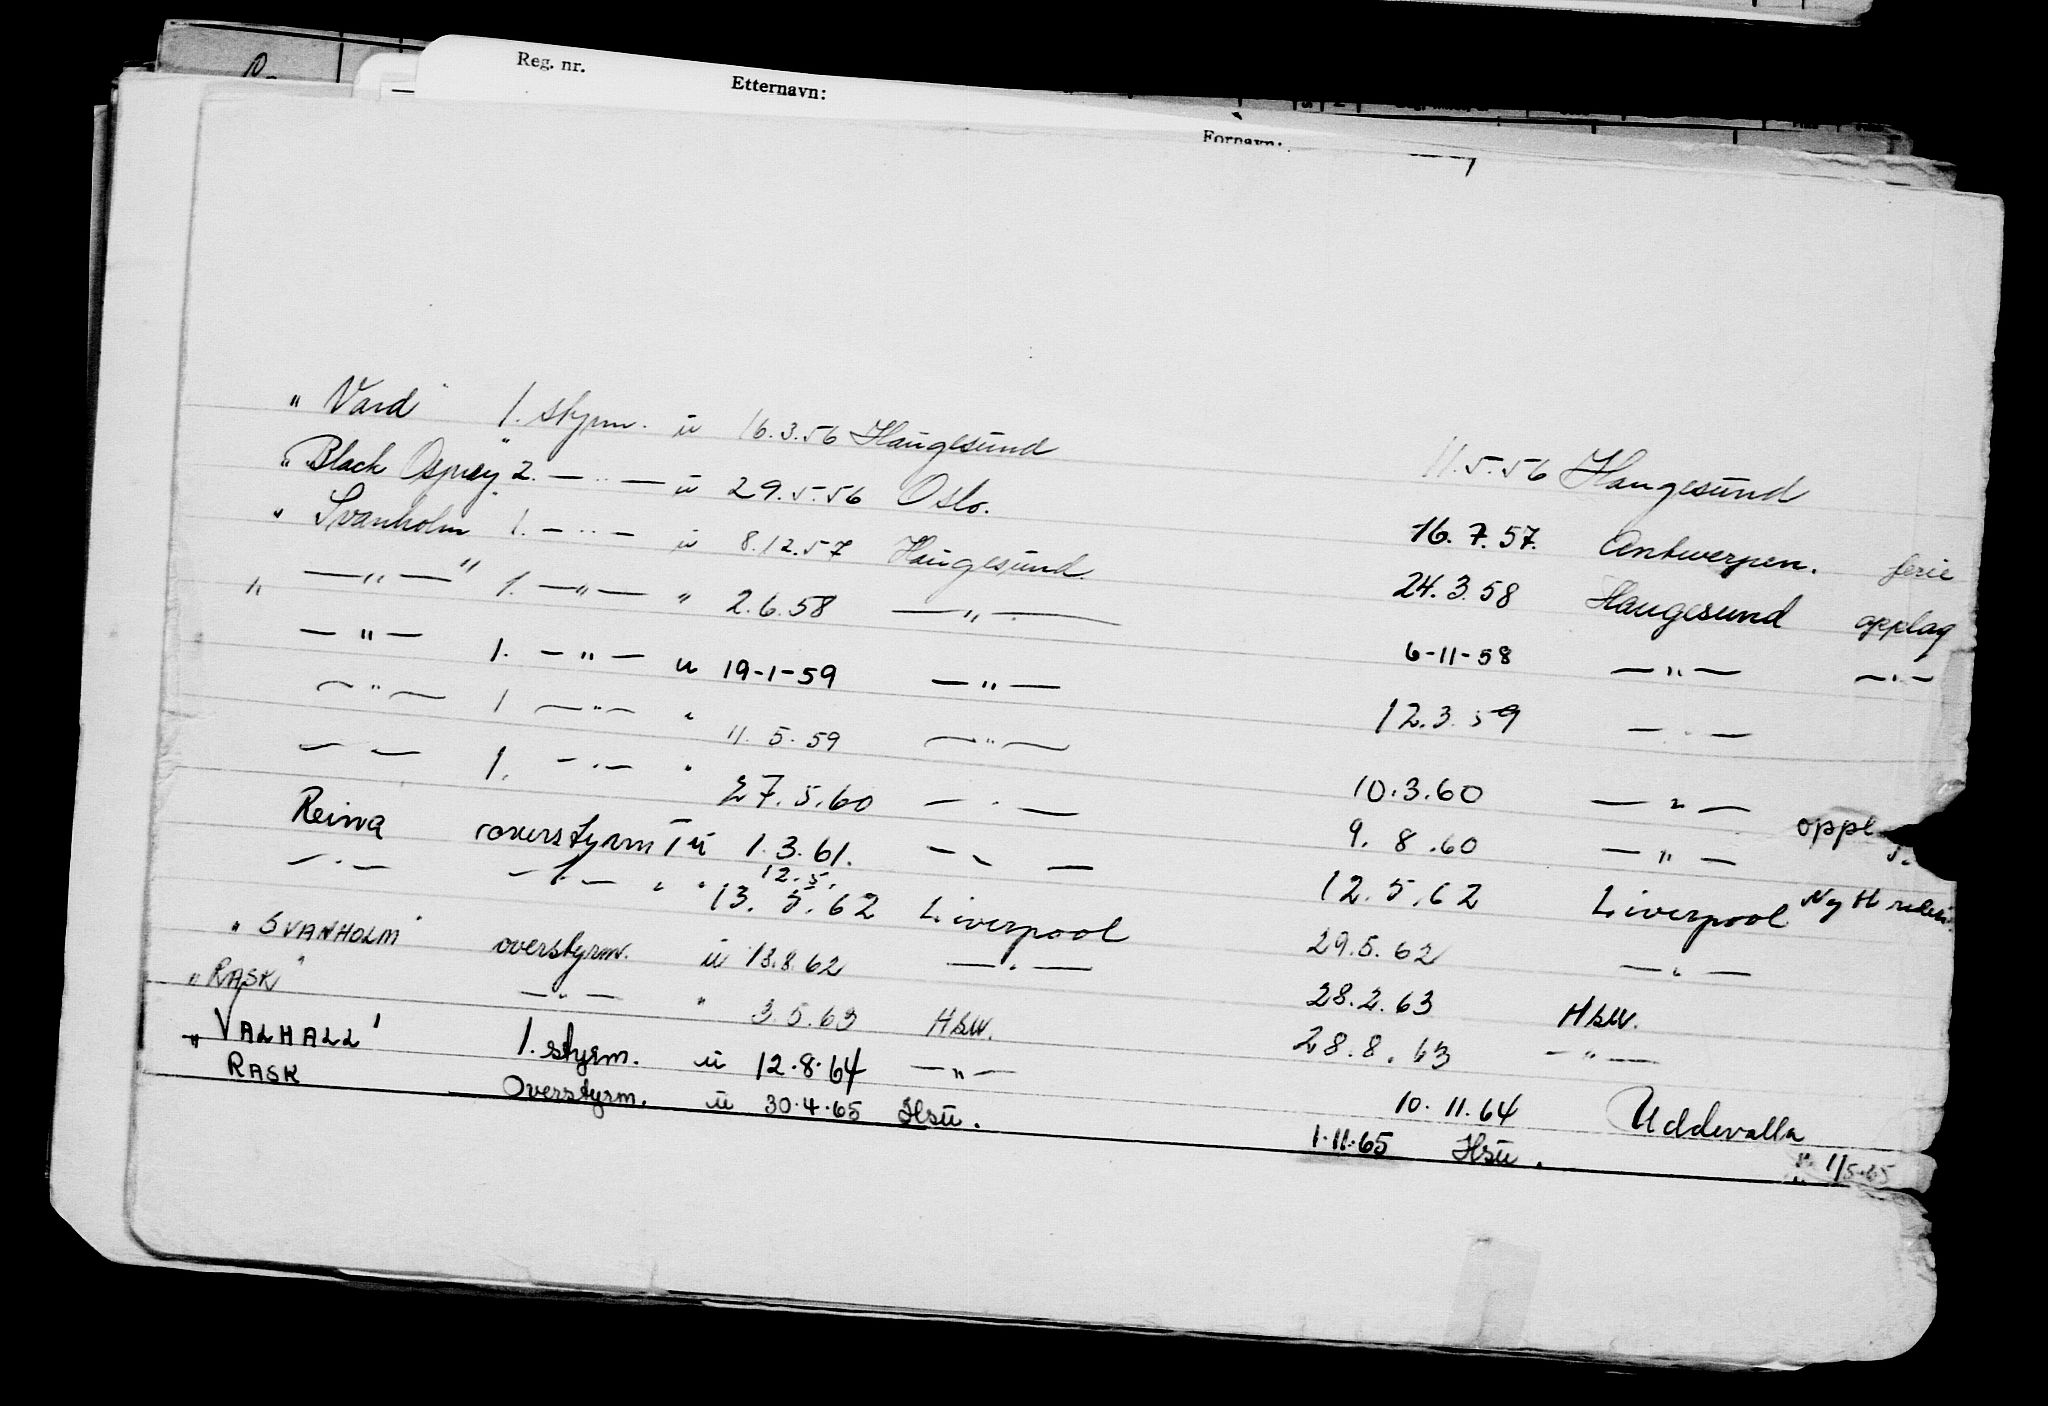 Reg. nr. Etternavn: Fornavn:
" Vard " 1. styrm. u 16.3.56 Haugesund 11.5.56 Haugesund
" Black Osprey " 2. — " — u 29.5.56 Oslo. 16.7.57. Antwerpen. ferie
" Svanholm " 1. — " — u 8.12.57 Haugesund. 24.3.58 Haugesund opplag
" — " — " 1. — " — " 2.6.58 — " — 6-11-58 — " — — " —
— " — 1. — " — u 19-1-59 — " — 12.3.59 — " —
— " — 1 — " — " 11.5.59 — " — 10.3.60 — " — oppl
— " — 1. — " — " 27.5.60 — " — 9.8.60 — " —
Reina overstyrm u 1.3.61. — " — 12.5.62 Liverpool Nytt
12.5.
— " — — " — " " 13.5.62 Liverpool 29.5.62 — " —
" SVANHOLM " overstyrm. u 18.8.62 — " — 28.2.63 Hsu.
" RASK " — " — " 3.5.63 Hsu. 28.8.63 — " —
" VALHALL " 1. styrm. u 12.8.64 — " — 10.11.64 Uddevalla
RASK Overstyrm. u 30.4.65 Hsu. 1.11.65 Hsu. 1/5-65